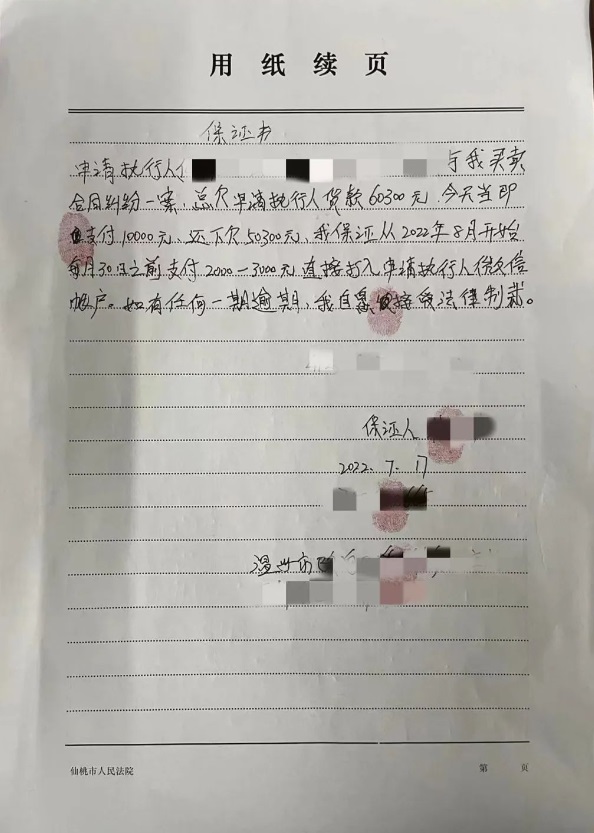 用纸续页
保证书
申请执行人 与我买卖
合同纠纷一案,总欠申请执行人货款60300元,今天当即
支付10000元,还下欠50300元,我保证从2022年8月开始
每月30日之前支付2000-3000元直接打入申请执行人微信
帐户。如有任何一期逾期,我自愿接受法律制裁。
保证人
2022.7.17
温州市
仙桃市人民法院 第 页